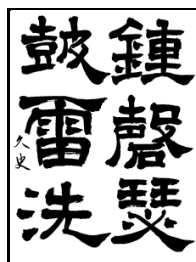 鍾磬瑟
皷雷洗
久史